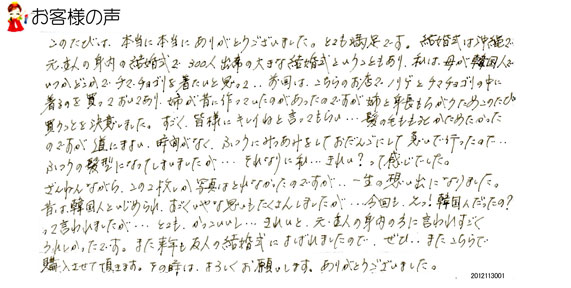 お客様の声
このたびは、本当に本当にありがとうございました。とても満足です。結婚式は沖縄で
元・主人の身内の結婚式で300人出席の大きな結婚式ということもあり、私は母が韓国人で
いつかどこかでチマ・チョゴリを着たいと思って.. 前回は、こちらのお店でノリゲとチマチョゴリの中に
着るのを買っておいてあり、姉が昔に作っていたのがあったのですが姉と身長もちがうためこのたび
買うことを決意しました。すごく、皆様にキレイねと言ってもらい… 髪の毛ももっとかためたかった
のですが 道にまよい、時間がなく、ふつうにみつあみをしておだんごにして 急いで行ったので…
ふつうの髪型になってしまいましたが… それなりに私…きれい?って感じでした。
ざんねんながら、この2枚しか写真はとれなかったのですが.. 一生の想い出になりました。
昔は韓国人といじめられ、すごくいやな思いもたくさんしましたが… 今回も、えっ!韓国人だったの?
って言われましたが… とても、かっこいいし… きれいと、元・主人の身内の方に言われすごく
うれしかったです。また来年も友人の結婚式によばれましたので、ぜひ.. またこちらで
購入させて頂きます。その時は、よろしくお願いします。ありがとうございました。
2012113001